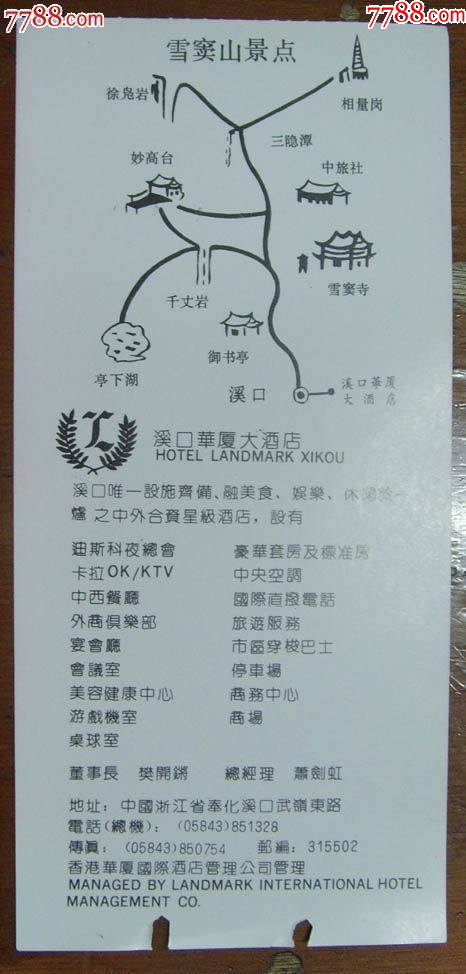 7788.com
7788.com
7788.com
雪窦山景点
徐凫岩
相量岗
三隐潭
妙高台
中旅社
雪窦寺
千丈岩
御书亭
亭下湖
溪口
溪口華厦
大酒店
L
溪口華厦大酒店
HOTEL LANDMARK XIKOU
溪口唯一設施齊備、融美食、娛樂、休閒於一
爐之中外合資星級酒店，設有
迪斯科夜總會 豪華套房及標准房
卡拉OK/KTV 中央空調
中西餐廳 國際直撥電話
外商俱樂部 旅遊服務
宴會廳 市區穿梭巴士
會議室 停車場
美容健康中心 商務中心
游戲機室 商場
桌球室
董事長 樊開鏘 總經理 蕭劍虹
地址：中國浙江省奉化溪口武嶺東路
電話(總機)：(05843)851328
傳真：(05843)850754 郵編：315502
香港華厦國際酒店管理公司管理
MANAGED BY LANDMARK INTERNATIONAL HOTEL
MANAGEMENT CO.